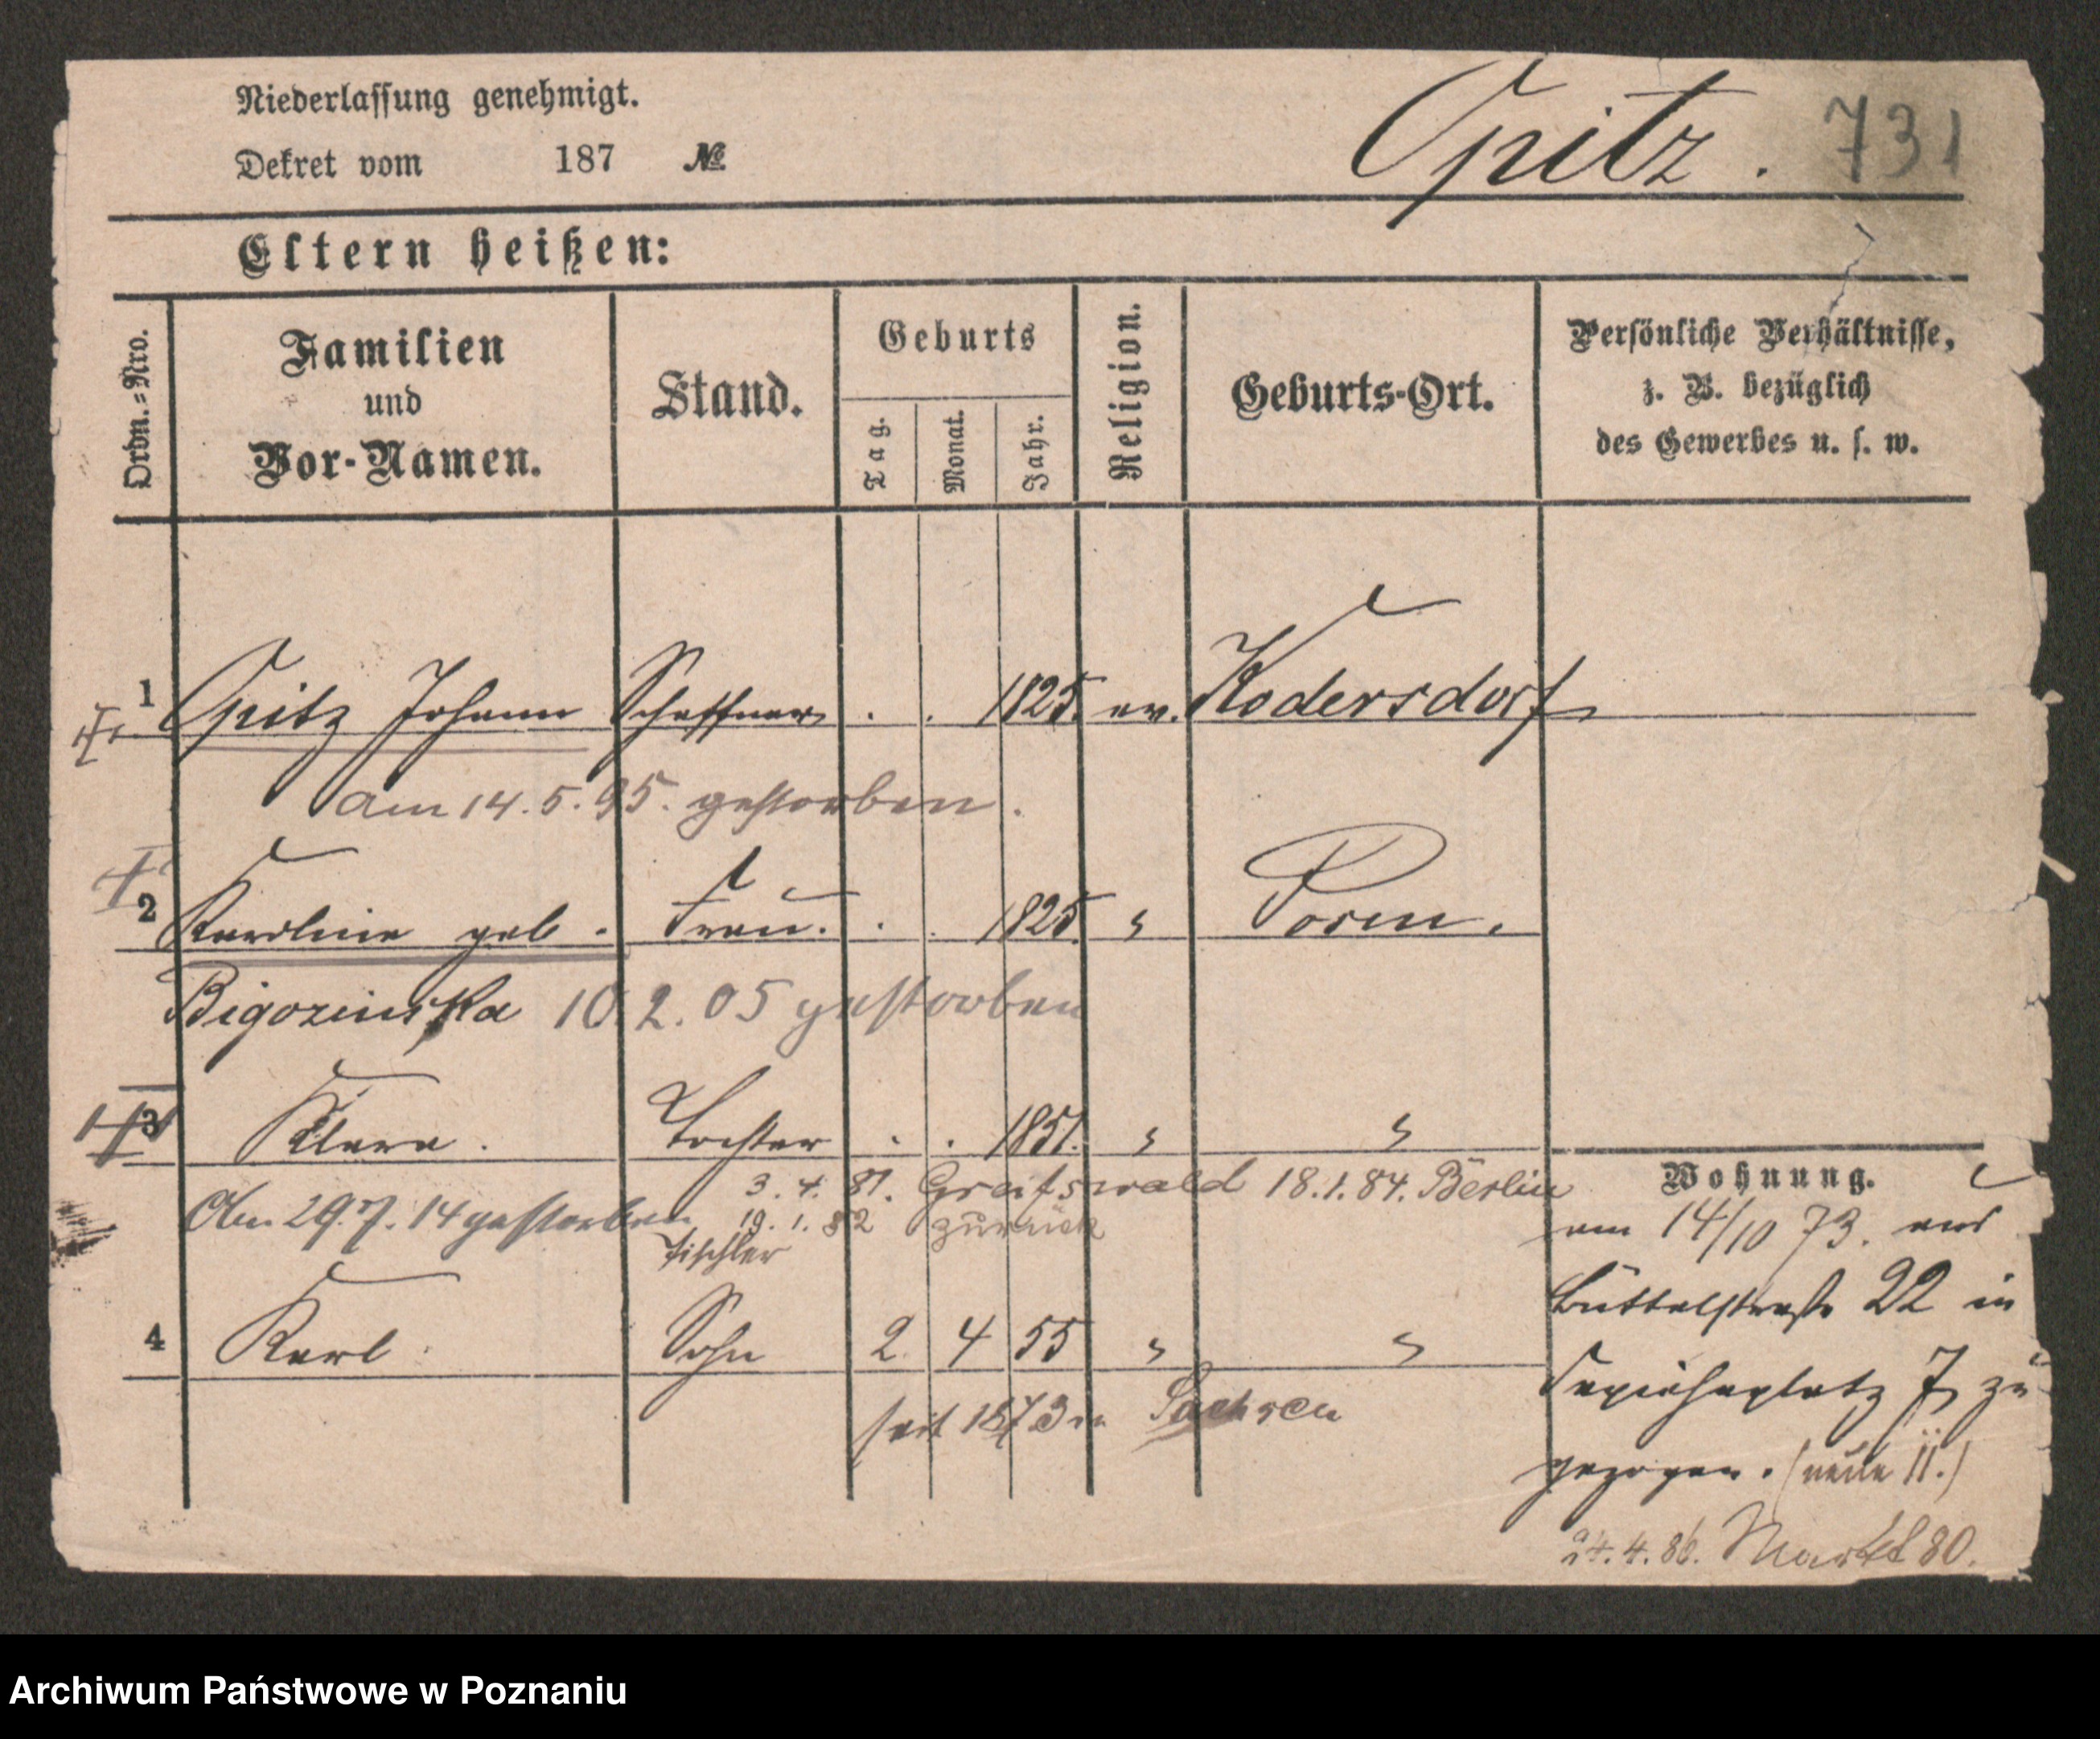 Niederlassung genehmigt.
Opitz. 731
Dekret vom 187 №
Eltern heißen:
Ordn.-Nro.
Familien und Vor-Namen.
Stand.
Geburts
Tag.
Monat.
Jahr.
Religion.
Geburts-Ort.
Persönliche Verhältnisse,
z. B. bezüglich
des Gewerbes u. s. w.
1 Opitz Johann Schaffner . . 1825. ev. Kodersdorf
am 14.5.95. gestorben.
2 Karoline geb. Frau. . . 1825. " Posen.
Bigozinska 10.2.05 gestorben
3 Klara. Tochter . . 1851. " "
3.4.81. Greifswald 18.1.84. Berlin
Am 29.7.14 gestorben 19.1.82 zurück
Tischler
4 Karl. Sohn 2 4 55 " "
seit 1873 in Sachsen
Wohnung.
am 14/10 73. aus
Büttelstraße 22 in
Sapiehaplatz 7 zu
gezogen. (neue 11.)
24.4.86. Markt 80.
Archiwum Państwowe w Poznaniu